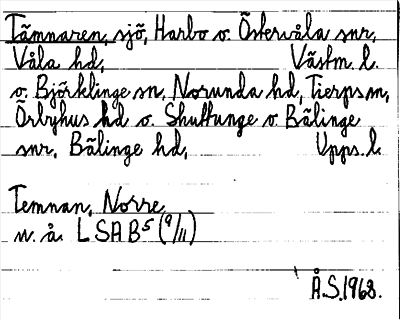 Tämnaren, sjö, Harbo o. Östervåla snr,
Våla hd, Västm. l.
o. Björklinge sn, Norunda hd, Tierps sn,
Örbyhus hd o. Skuttunge o. Bälinge
snr, Bälinge hd, Upps. l.
Temnan, Norre,
n. å. LSAB5 (9/11)
Å.S. 1968.